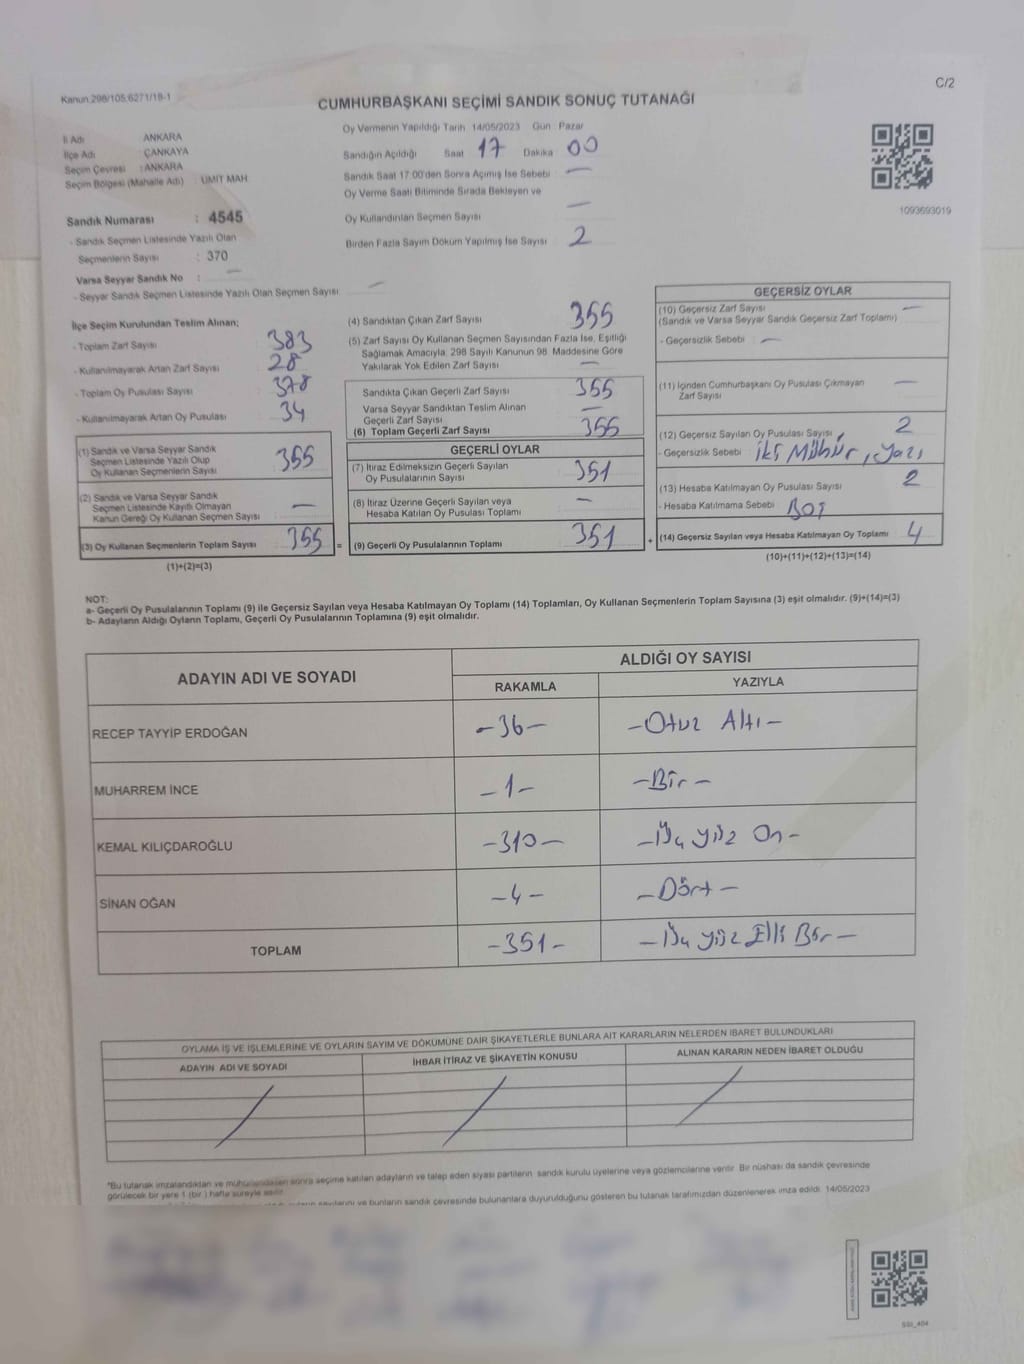 C/2
Kanun 298/105.6271/18-1
CUMHURBAŞKANI SEÇİMİ SANDIK SONUÇ TUTANAĞI
İl Adı ANKARA
İlçe Adı ÇANKAYA
Seçim Çevresi : ANKARA
Seçim Bölgesi (Mahalle Adı) ÜMİT MAH.
Sandık Numarası : 4545
- Sandık Seçmen Listesinde Yazılı Olan
Seçmenlerin Sayısı : 370
Varsa Seyyar Sandık No : —
- Seyyar Sandık Seçmen Listesinde Yazılı Olan Seçmen Sayısı —
Oy Vermenin Yapıldığı Tarih 14/05/2023 Gün : Pazar
Sandığın Açıldığı Saat 17 Dakika 00
Sandık Saat 17:00'den Sonra Açılmış İse Sebebi —
Oy Verme Saati Bitiminde Sırada Bekleyen ve
Oy Kullandırılan Seçmen Sayısı —
Birden Fazla Sayım Döküm Yapılmış İse Sayısı 2
1093693019
İlçe Seçim Kurulundan Teslim Alınan;
- Toplam Zarf Sayısı 383
- Kullanılmayarak Artan Zarf Sayısı 28
- Toplam Oy Pusulası Sayısı 378
- Kullanılmayarak Artan Oy Pusulası 34
(1) Sandık ve Varsa Seyyar Sandık
Seçmen Listesinde Yazılı Olup
Oy Kullanan Seçmenlerin Sayısı 355
(2) Sandık ve Varsa Seyyar Sandık
Seçmen Listesinde Kayıtlı Olmayan
Kanun Gereği Oy Kullanan Seçmen Sayısı —
(3) Oy Kullanan Seçmenlerin Toplam Sayısı 355 =
(1)+(2)=(3)
(4) Sandıktan Çıkan Zarf Sayısı 355
(5) Zarf Sayısı Oy Kullanan Seçmen Sayısından Fazla İse, Eşitliği
Sağlamak Amacıyla, 298 Sayılı Kanunun 98. Maddesine Göre
Yakılarak Yok Edilen Zarf Sayısı —
Sandıkta Çıkan Geçerli Zarf Sayısı 355
Varsa Seyyar Sandıktan Teslim Alınan
Geçerli Zarf Sayısı —
(6) Toplam Geçerli Zarf Sayısı 355
GEÇERLİ OYLAR
(7) İtiraz Edilmeksizin Geçerli Sayılan
Oy Pusulalarının Sayısı 351
(8) İtiraz Üzerine Geçerli Sayılan veya
Hesaba Katılan Oy Pusulası Toplamı —
(9) Geçerli Oy Pusulalarının Toplamı 351 +
GEÇERSİZ OYLAR
(10) Geçersiz Zarf Sayısı —
(Sandık ve Varsa Seyyar Sandık Geçersiz Zarf Toplamı)
- Geçersizlik Sebebi : —
(11) İçinden Cumhurbaşkanı Oy Pusulası Çıkmayan
Zarf Sayısı —
(12) Geçersiz Sayılan Oy Pusulası Sayısı 2
- Geçersizlik Sebebi İki Mühür, Yazı
(13) Hesaba Katılmayan Oy Pusulası Sayısı 2
- Hesaba Katılmama Sebebi Boş
(14) Geçersiz Sayılan veya Hesaba Katılmayan Oy Toplamı 4
(10)+(11)+(12)+(13)=(14)
NOT:
a- Geçerli Oy Pusulalarının Toplamı (9) ile Geçersiz Sayılan veya Hesaba Katılmayan Oy Toplamı (14) Toplamları, Oy Kullanan Seçmenlerin Toplam Sayısına (3) eşit olmalıdır. (9)+(14)=(3)
b- Adayların Aldığı Oyların Toplamı, Geçerli Oy Pusulalarının Toplamına (9) eşit olmalıdır.
ADAYIN ADI VE SOYADI ALDIĞI OY SAYISI
RAKAMLA YAZIYLA
RECEP TAYYİP ERDOĞAN -36- -Otuz Altı-
MUHARREM İNCE -1- -Bir-
KEMAL KILIÇDAROĞLU -310- -Üç yüz On-
SİNAN OĞAN -4- -Dört-
TOPLAM -351- -Üç yüz Elli Bir-
OYLAMA İŞ VE İŞLEMLERİNE VE OYLARIN SAYIM VE DÖKÜMÜNE DAİR ŞİKAYETLERLE BUNLARA AİT KARARLARIN NELERDEN İBARET BULUNDUKLARI
ADAYIN ADI VE SOYADI İHBAR İTİRAZ VE ŞİKAYETİN KONUSU ALINAN KARARIN NEDEN İBARET OLDUĞU
*Bu tutanak imzalandıktan ve mühürlendikten sonra seçime katılan adayların ve talep eden siyasi partilerin sandık kurulu üyelerine veya gözlemcilerine verilir. Bir nüshası da sandık çevresinde
görülecek bir yere 1 (bir ) hafta süreyle asılır.
sayılarını ve bunların sandık çevresinde bulunanlara duyurulduğunu gösteren bu tutanak tarafımızdan düzenlenerek imza edildi. 14/05/2023
SSI_404